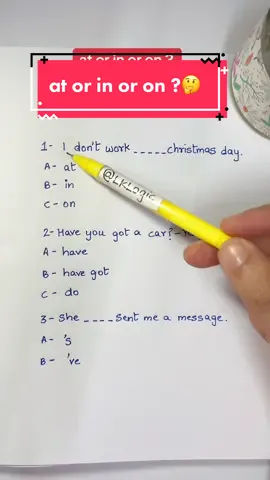 at or in or on ?
at or in or on ?🤔
1- I don't work _____christmas day.
A- at
B- in
C- on
@LKLogic
2- Have you got a car?-
A- have
B- have got
C- do
3- She ____ sent me a message.
A- 's
B- 've